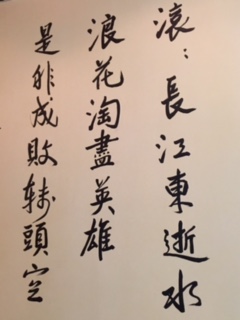 滾：長江東逝水
浪花淘盡英雄
是非成敗轉頭空